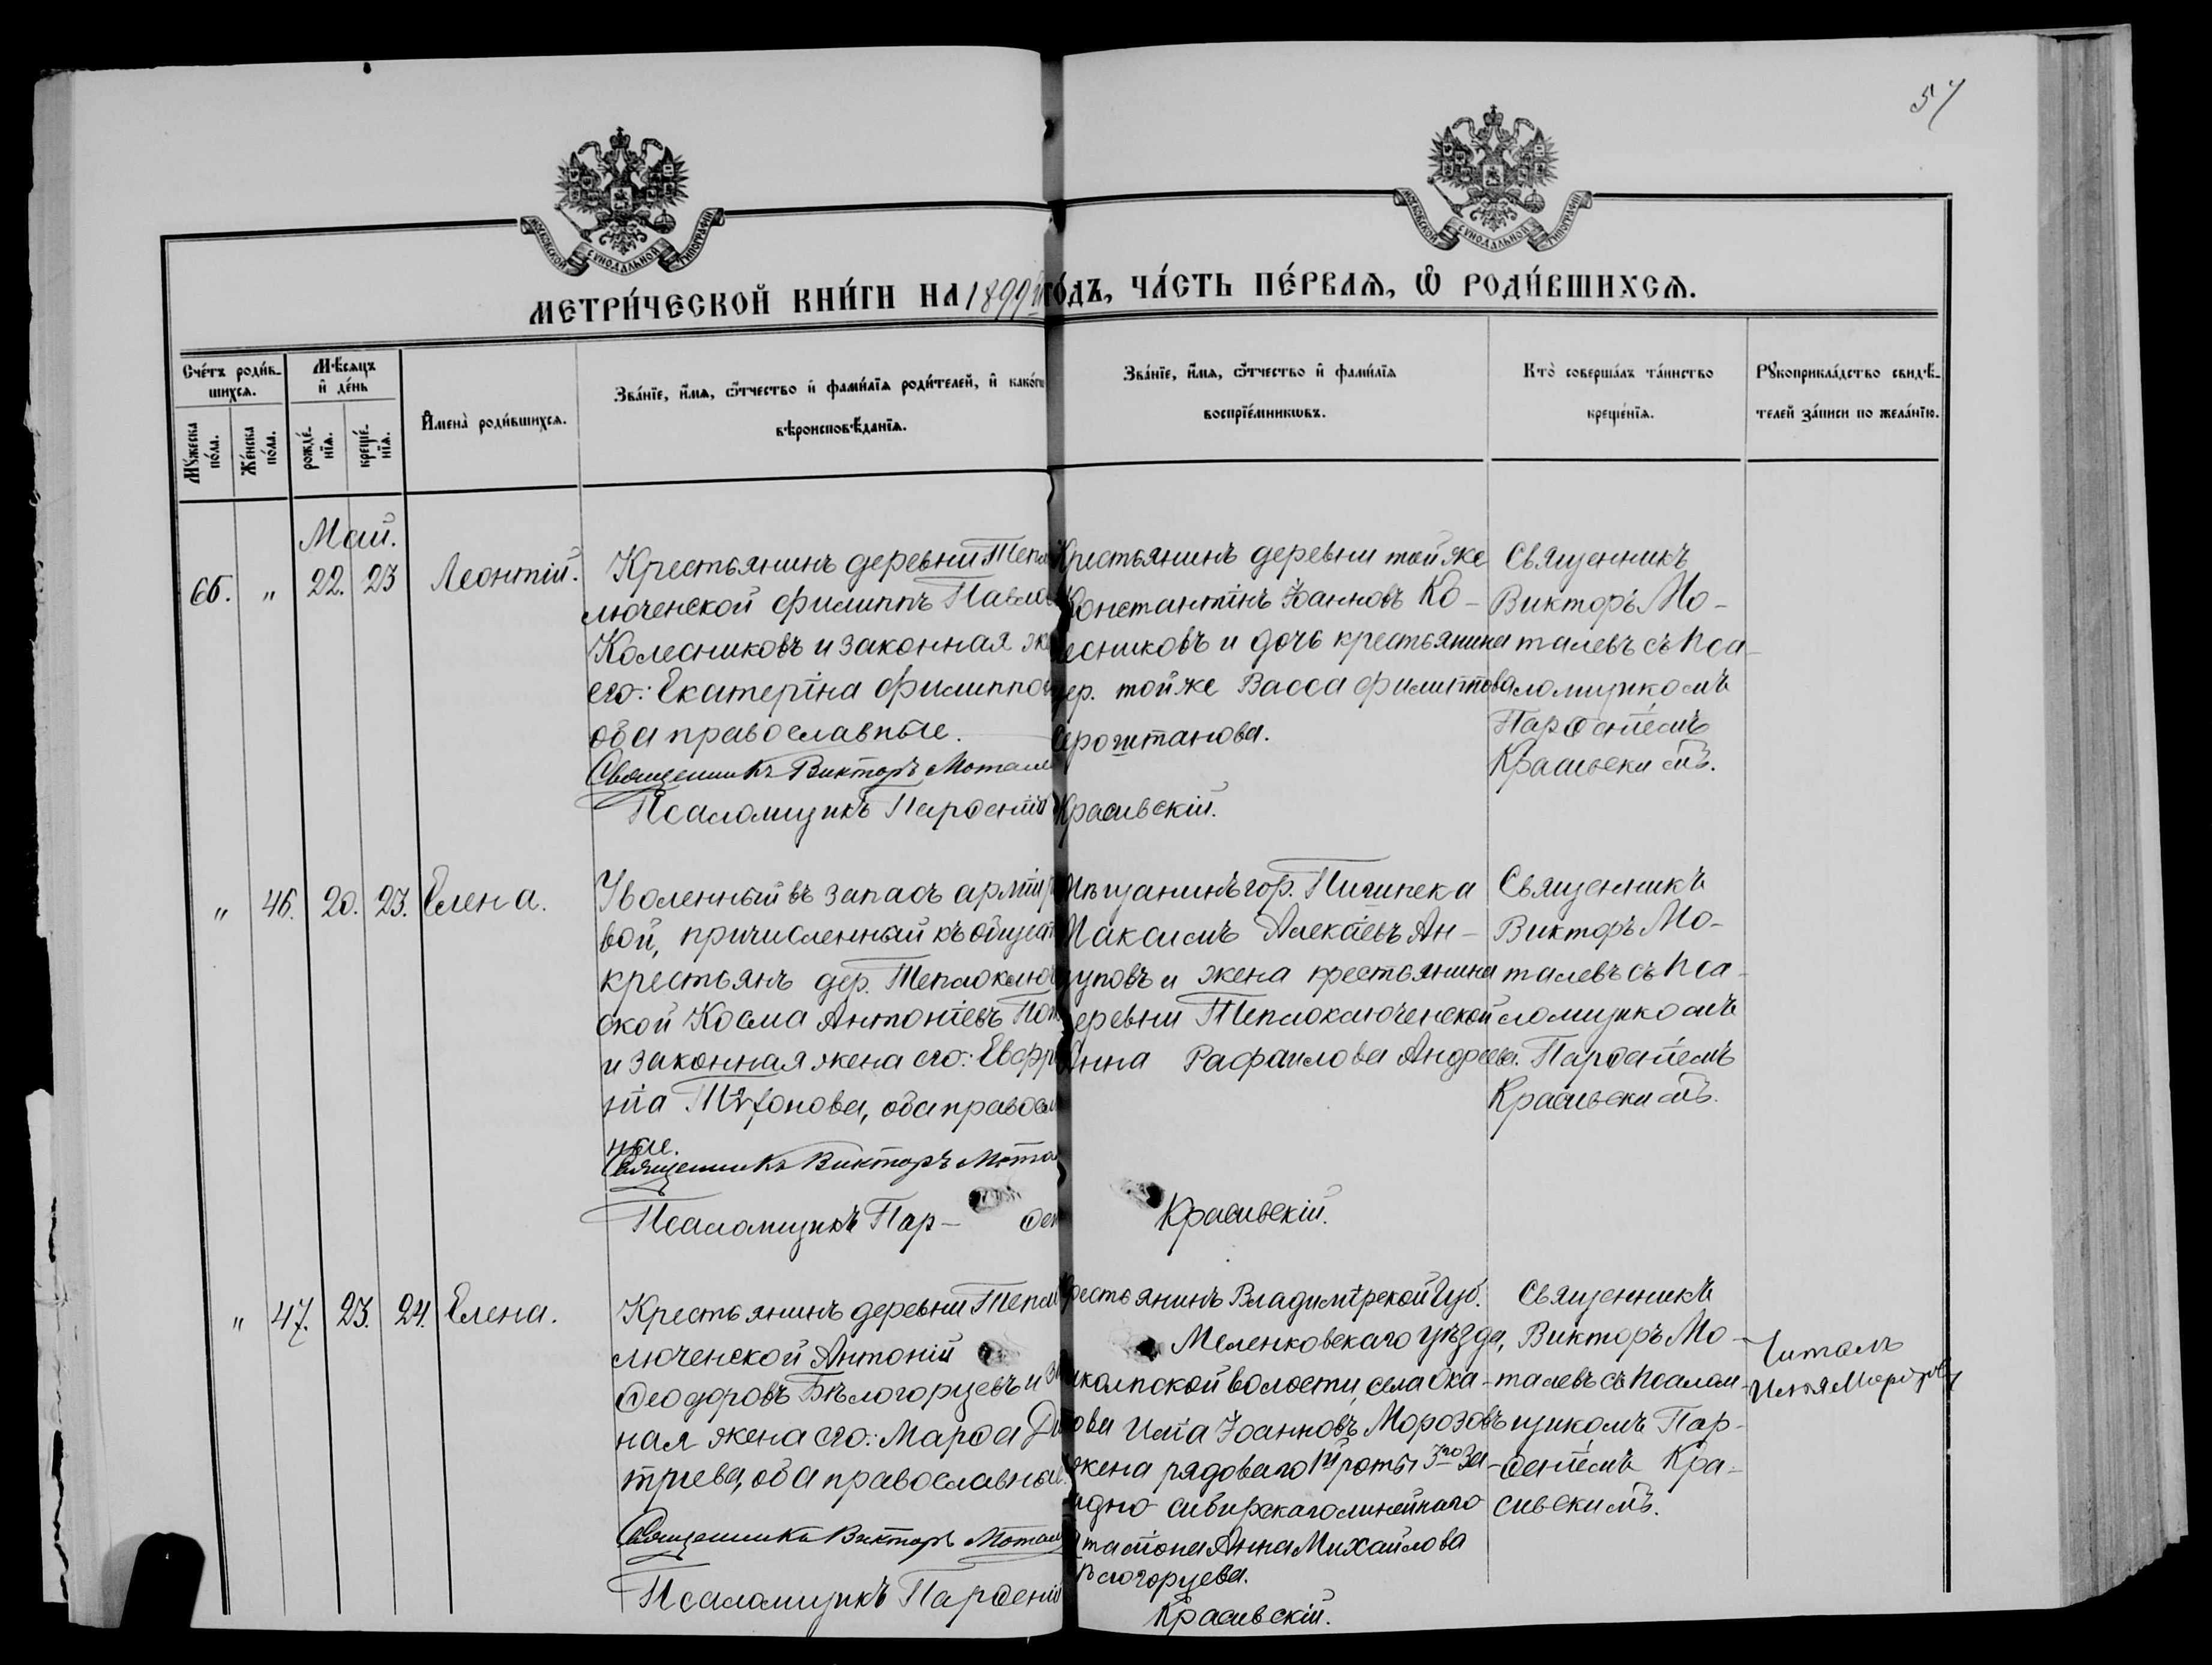 57
МОСКОВСКОЙ СѴНОДАЛЬНОЙ ТИПОГРАФІИ
МОСКОВСКОЙ СѴНОДАЛЬНОЙ ТИПОГРАФІИ
МЕТРИ́ЧЕСКОЙ КНИ́ГИ НА 1899й ГО́ДЪ, ЧА́СТЬ ПЕ́РВАѦ, Ѡ҆ РОДИ́ВШИХСѦ.
Сче́тъ роди́в-
шихсѧ.
Мꙋ́жеска по́ла.
Же́нска по́ла.
Мѣ́сѧцъ
и҆ де́нь
рожде́-
нїѧ.
креще́-
нїѧ.
И҆мена̀ роди́вшихсѧ.
Зва́нїе, и҆́мѧ, ѻ҆́тчество и҆ фами́лїѧ роди́телей, и҆ како́гѡ
вѣроисповѣ́данїѧ.
Зва́нїе, и҆́мѧ, ѻ҆́тчество и҆ фами́лїѧ
воспрїе́мникѡвъ.
Кто̀ соверша́лъ та́инство
креще́нїѧ.
Рꙋкоприкла́дство свидѣ́-
телей за́писи по жела́нїю.
Май.
66. " 22. 23 Леонтій.
Крестьянинъ деревни Тепло
люченской Филиппъ Павлов
Колесниковъ и законная же
его: Екатеріна Филиппов
оба православные.
Священникъ Викторъ Мотале
Псаломщикъ Парѳеній Красивскій.
Крестьянинъ деревни той же
Константінъ Іоанновъ Ко-
лесниковъ и дочь крестьянина
дер. той же Васса Филиппова
Сероштанова.
Священникъ
Викторъ Мо-
талевъ съ Пса-
ломщикомъ
Парѳеніемъ
Красивскимъ.
" 46. 20. 23. Елена.
Уволенный въ запасъ арміи
вой, причисленный къ общест
крестьянъ дер. Теплоключ
ской Косма Антоніевъ Поп
и законная жена его: Евфр
нія Трѵфонова, оба правосл
ные.
Священникъ Викторъ Мота
Псаломщикъ Пар- ѳен Красивскій.
Мѣщанинъ гор. Пишпека
Максимъ Алексіевъ Ан-
жена крестьянина
деревни Теплоключенской
Анна Рафаилова Андреева.
Священникъ
Викторъ Мо-
талевъ съ Пса-
ломщикомъ
Парѳеніемъ
Красивскимъ.
" 47. 23. 24. Елена.
Крестьянинъ деревни Тепло
люченской Антоній
Ѳеодоровъ Бѣлогорцевъ и за
ная жена его: Марѳа Ди
тріева, оба православные.
Священникъ Викторъ Мотале
Псаломщикъ Парѳеній Красивскій.
Крестьянинъ Владимірской Губ.
Меленковскаго уѣзда,
волости, села Ока-
това Илія Іоанновъ Морозовъ
жена рядоваго 1й роты 3го За-
падно сибирскаго линейнаго
баталіона Анна Михайлова
Бѣлогорцева.
Священникъ
Викторъ Мо-
талевъ съ Псалом-
щикомъ Пар-
ѳеніемъ Кра-
сивскимъ.
Читалъ
Илья Морозовъ